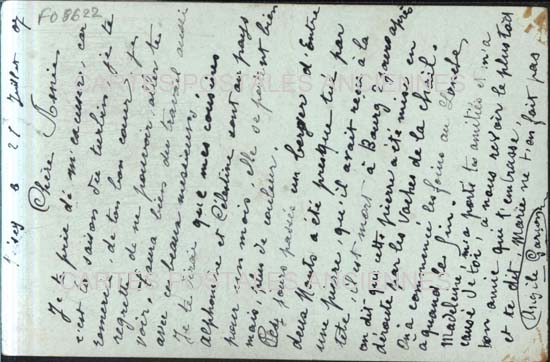 FO8622
21 Juillet 07
Chère Fannie
Je te prie de m'excuser, car
c'est la saison du turbin je te
remercie, de ton bon cœur je
regrette de ne pouvoir aller te
voir, j'aurai bien du travail aussi
avec ces beaux messieurs.
Je te dirai que mes cousins
Alphonsine et Célestine sont au pays
pour un mois, elle se portent bien
mais, peu de couleur.
Ces jours passés un berger d'Entre
deux Monts a été presque tué par
une pierre, qu'il avait reçu à la
tête, il est mort à Bourg 2 jours après
on dit que cette pierre a été mise en
déroute par les vaches de la Chail.
On a commencé les foins au
à quand la fin.
Madeleine m'a porté tes amitiés et m'a
causé de toi, à nous revoir le plus tôt
ton amie qui t'embrasse
et te dit Marie ne t'en fait pas
CARTES POSTALES ANCIENNES
CARTES POSTALES ANCIENNES